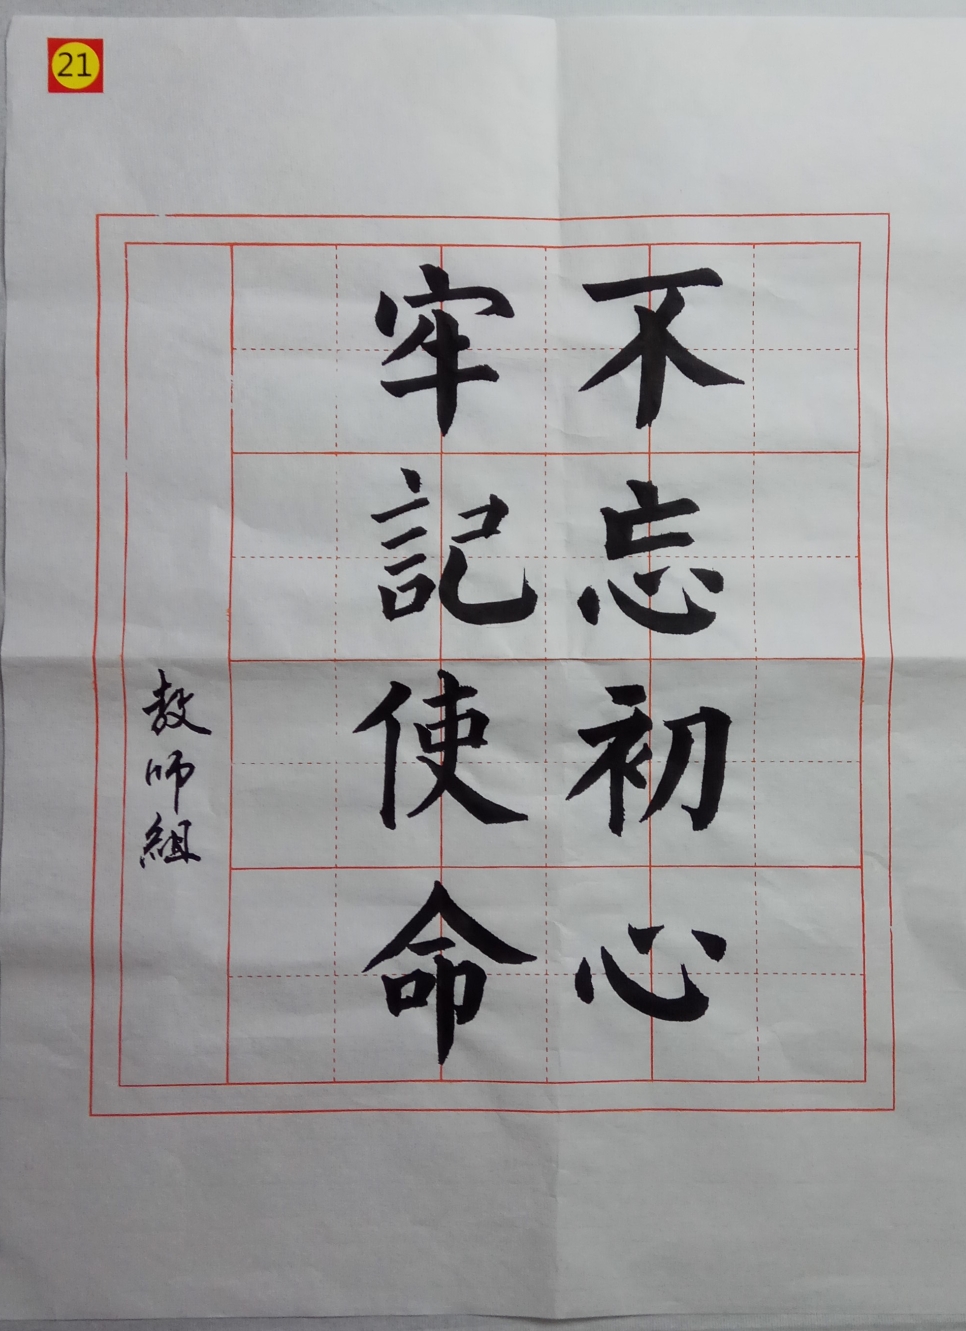 21
不忘初心
牢記使命
教师組